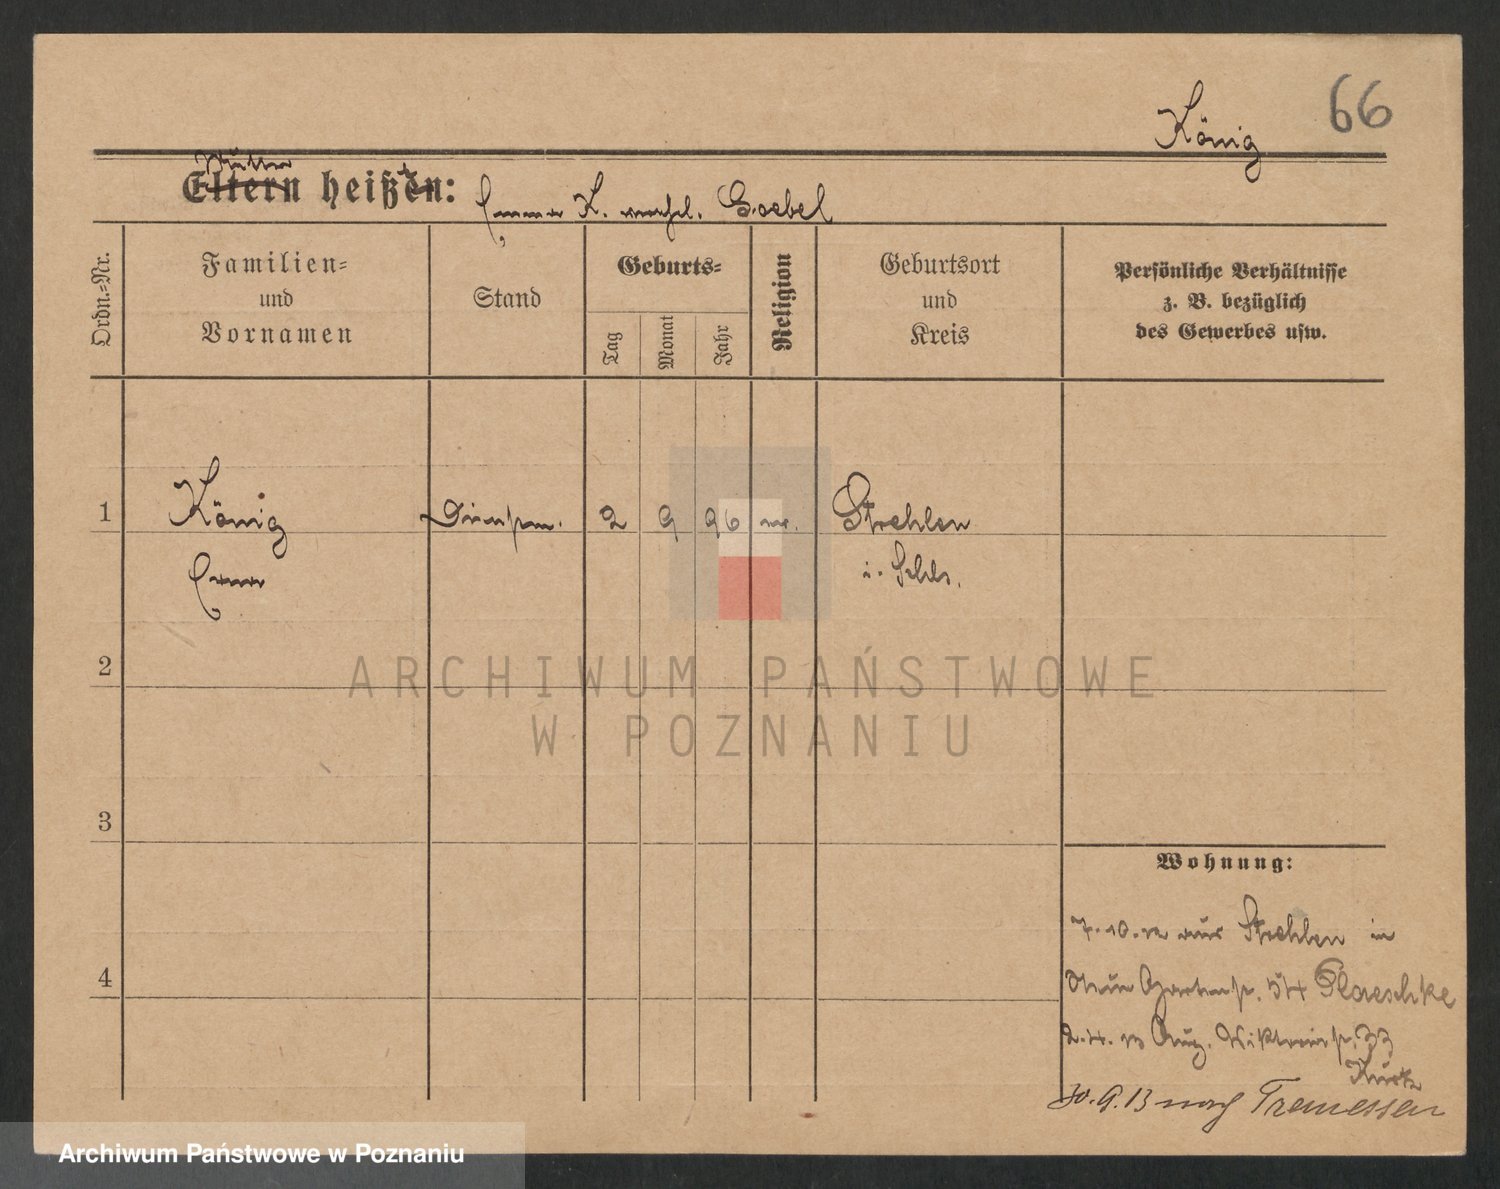 66
König
Mutter
Eltern heißen:
Emma K. verehl. Goebel
Ordn.-Nr.
Familien-
und
Vornamen
Stand
Geburts-
Tag
Monat
Jahr
Religion
Geburtsort
und
Kreis
Persönliche Verhältnisse
z. B. bezüglich
des Gewerbes usw.
1
König
Dienstm.
2
9
96
ev.
Strehlen
Emma
i. Schles.
2
3
4
Wohnung:
7.10.12 aus Strehlen in
Gartenstr. Plaeschke
2.4.13 Aug. Viktoriastr. 33
30.9.13 nach Tremessen
ARCHIWUM PAŃSTWOWE
W POZNANIU
Archiwum Państwowe w Poznaniu